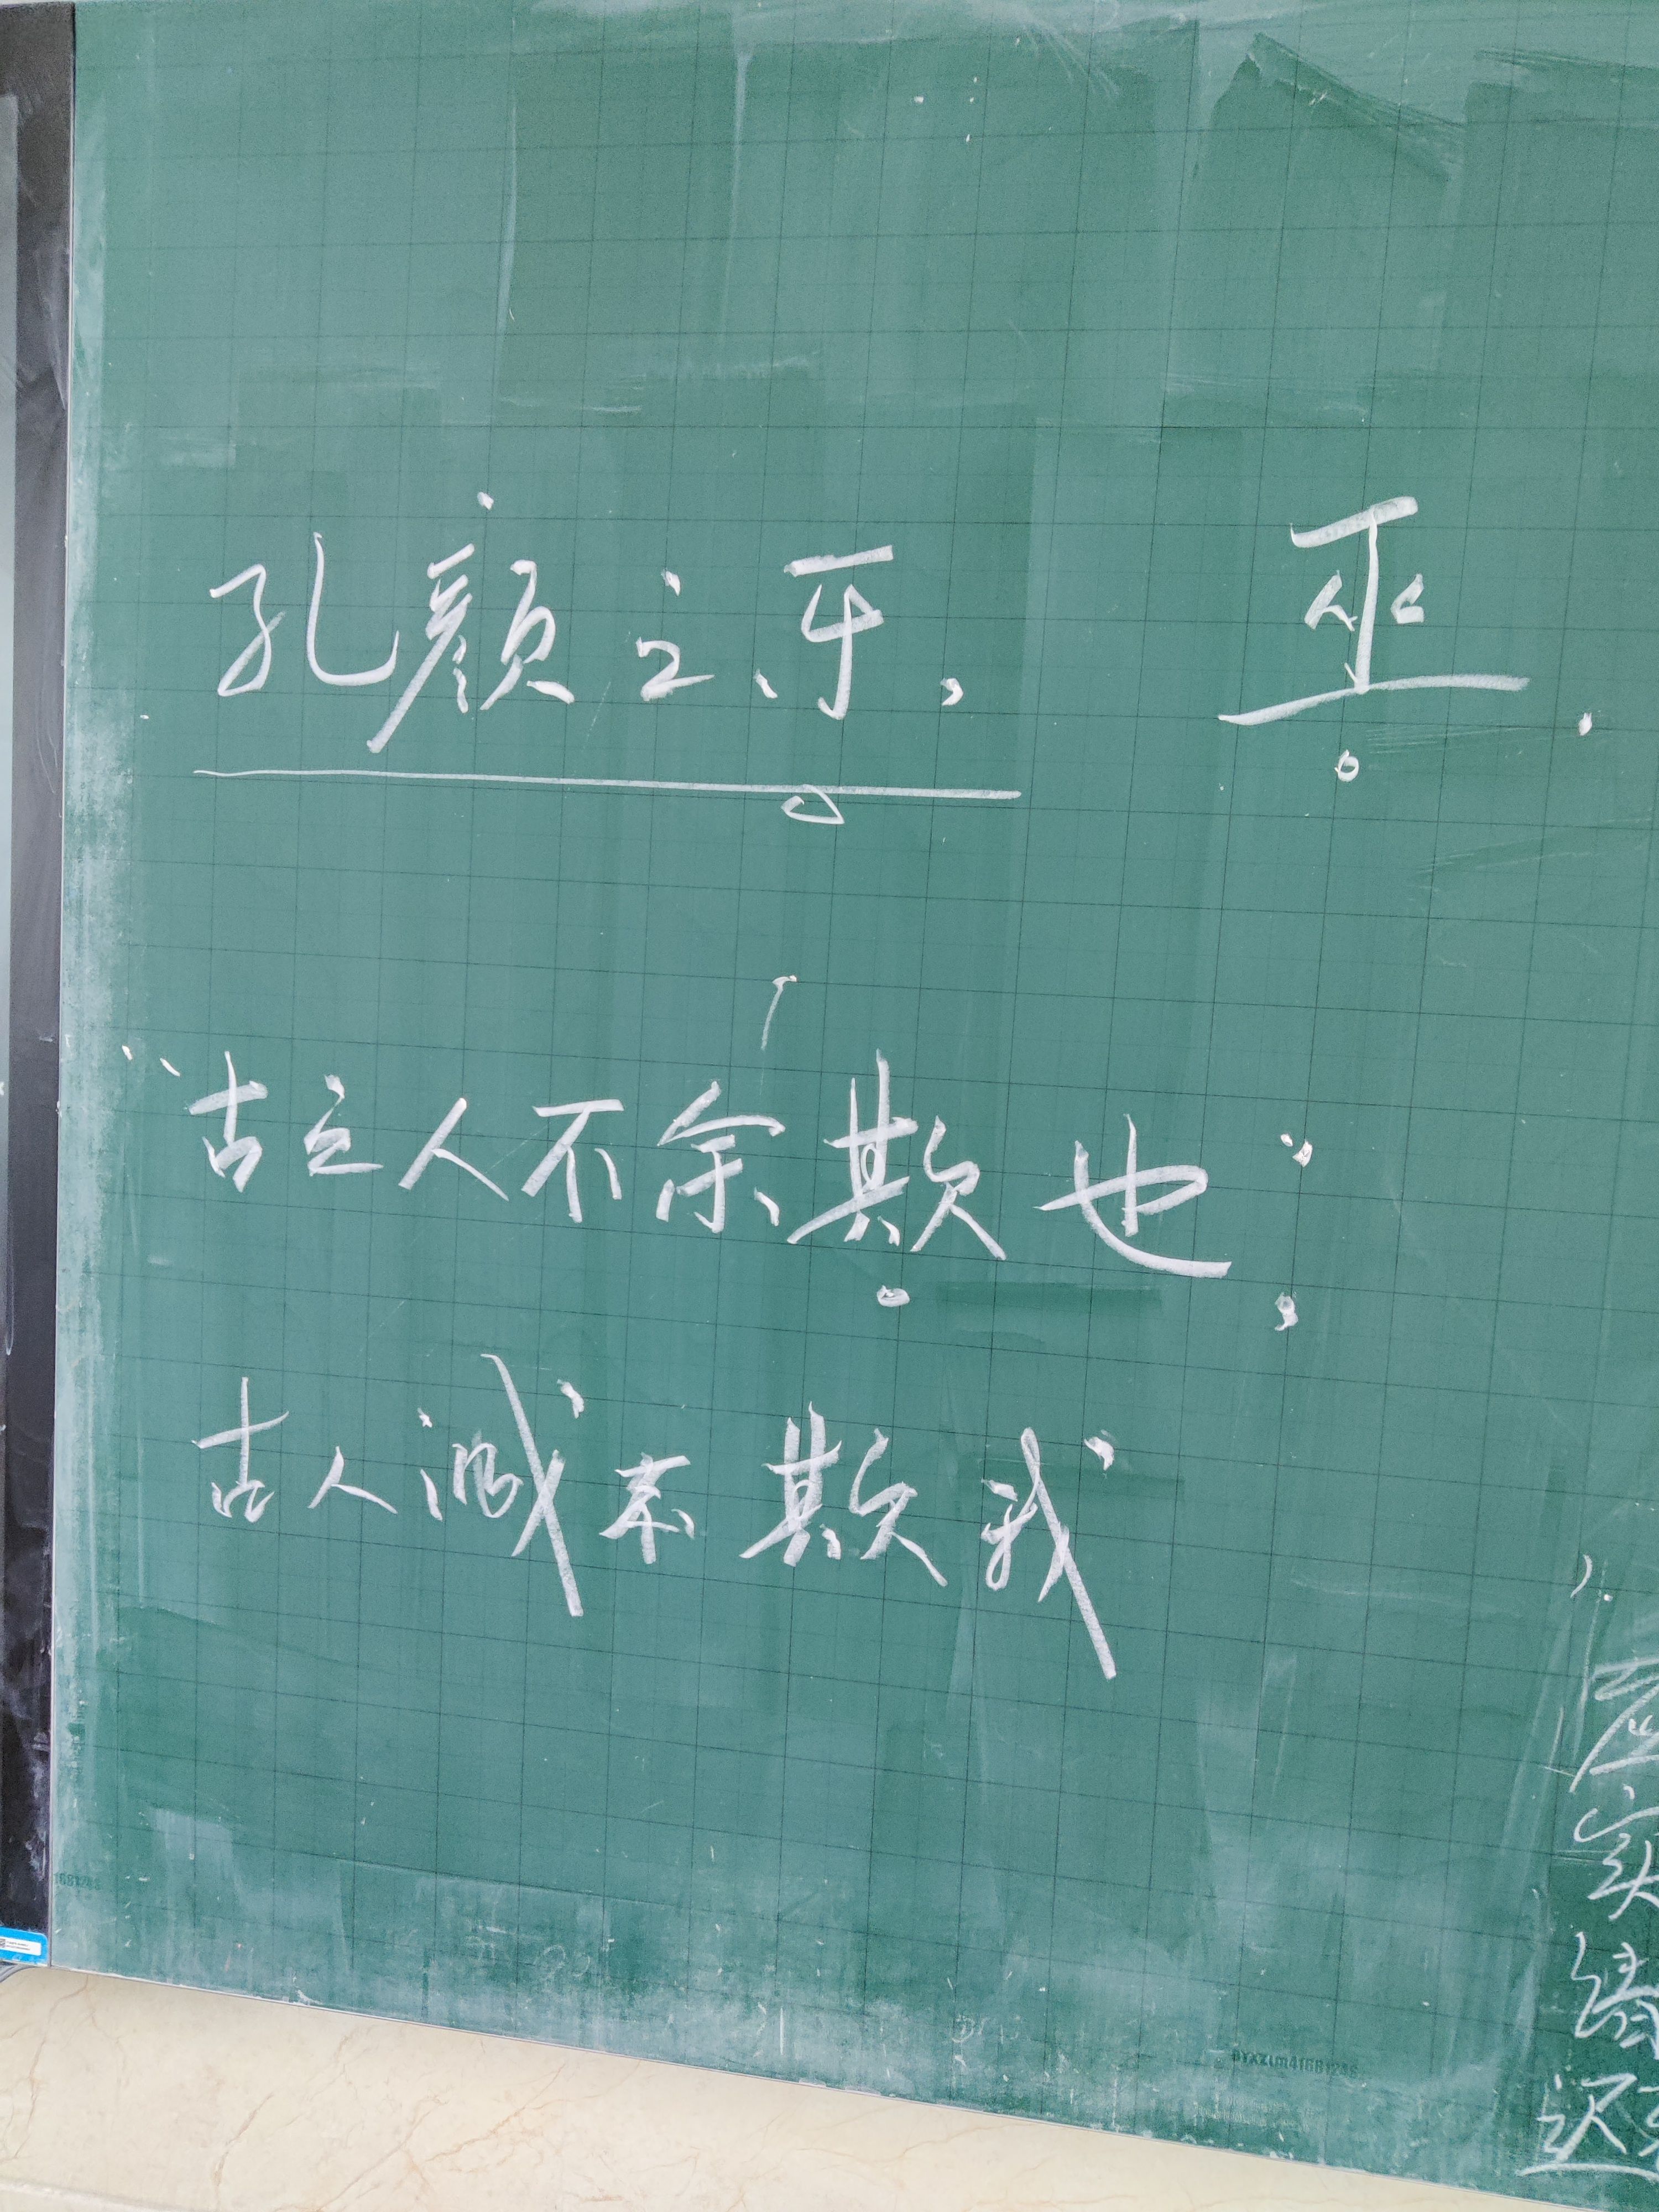 孔颜之乐, 巫.
“古之人不余欺也”;
古人诚不欺我”
应
实
绩
迟